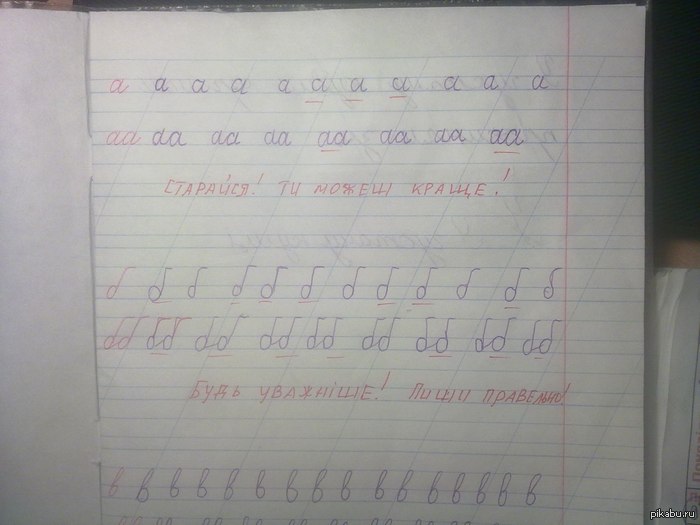 а а а а а а а а а а а
аа аа аа аа аа аа аа аа
СТАРАЙСЯ! ТИ МОЖЕШ КРАЩЕ!
б б б б б б б б б б б б
бб бб бб бб бб бб бб бб бб
БУДЬ УВАЖНІШЕ! ПИШИ ПРАВЕЛЬНО!
в в в в в в в в в в в в в в в
pikabu.ru